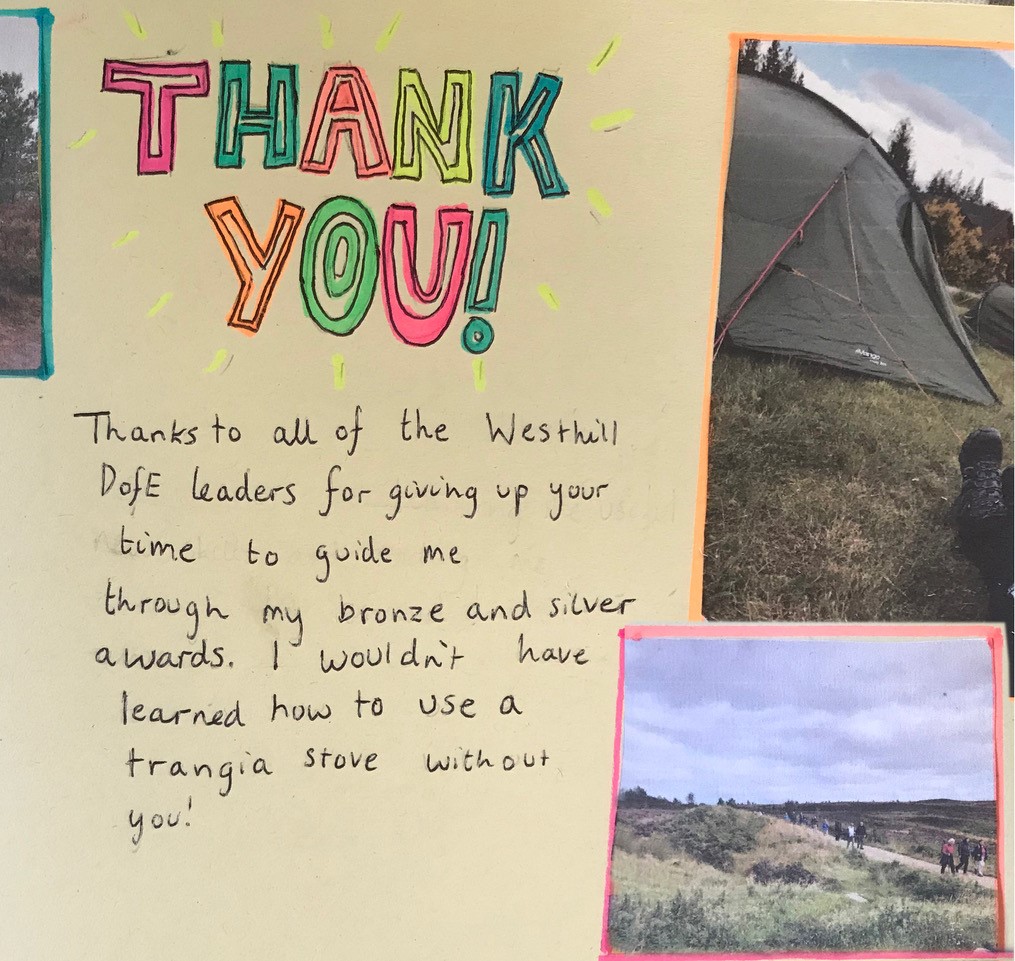 THANK
YOU!
Thanks to all of the Westhill
DofE leaders for giving up your
time to guide me
through my bronze and silver
awards. I wouldn't have
learned how to use a
trangia stove without
you!
vango